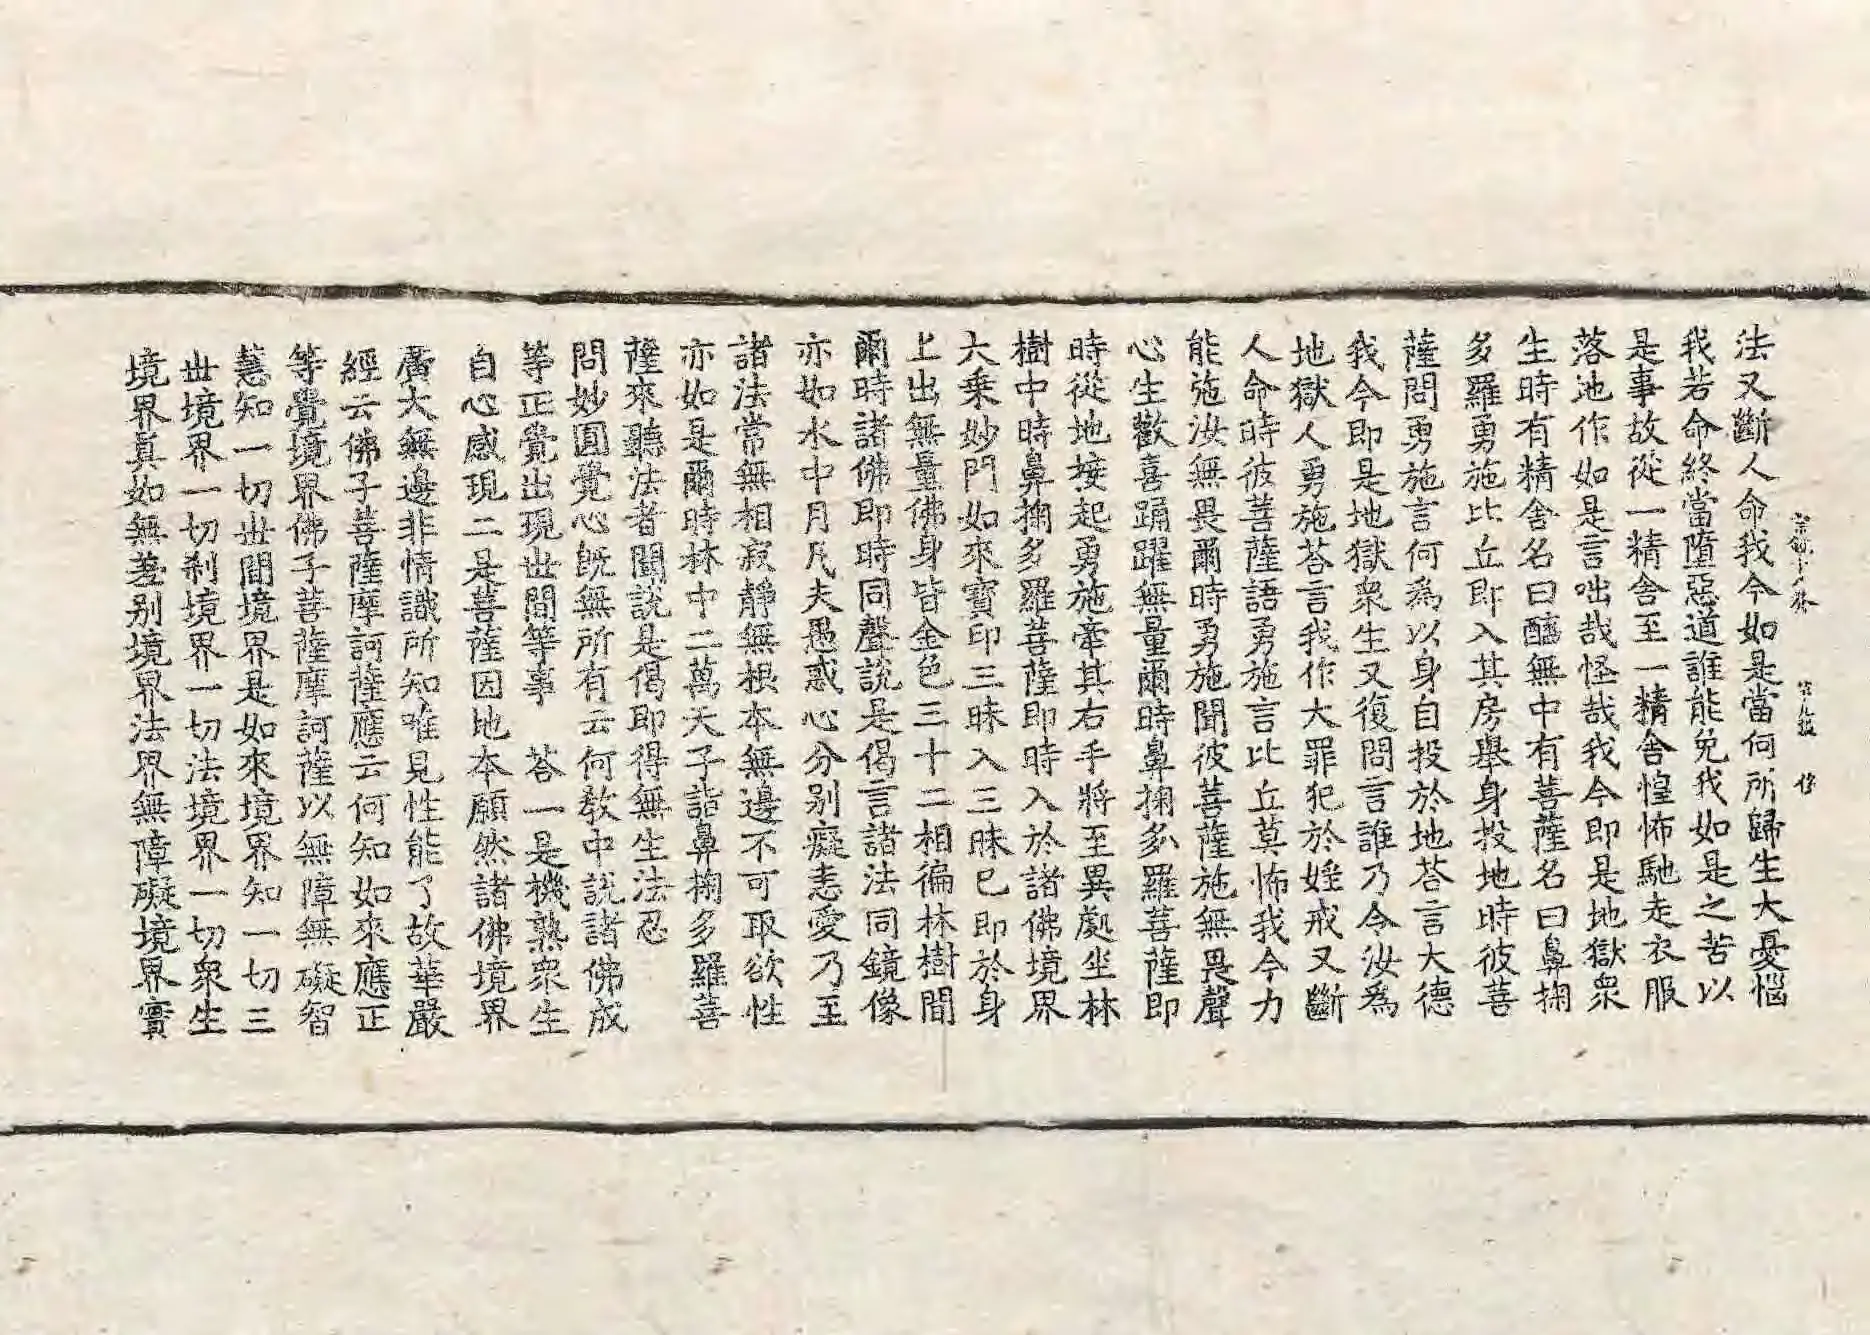 法又斷人命我今如是當何所歸生大憂惱
我若命終當墮惡道誰能免我如是之苦以
是事故從一精舍至一精舍惶怖馳走衣服
落地作如是言咄哉怪哉我今即是地獄衆
生時有精舍名曰醯無中有菩薩名曰鼻掬
多羅勇施比丘即入其房舉身投地時彼菩
薩問勇施言何為以身自投於地荅言大德
我今即是地獄衆生又復問言誰乃令汝為
地獄人勇施荅言我作大罪犯於婬戒又斷
人命時彼菩薩語勇施言比丘莫怖我今力
能施汝無畏爾時勇施聞彼菩薩施無畏聲
心生歡喜踊躍無量爾時鼻掬多羅菩薩即
時從地接起勇施牽其右手將至異處坐林
樹中時鼻掬多羅菩薩即時入於諸佛境界
大乘妙門如來寶印三昧入三昧已即於身
上出無量佛身皆金色三十二相徧林樹間
爾時諸佛即時同聲說是偈言諸法同鏡像
亦如水中月凡夫愚惑心分别癡恚愛乃至
諸法常無相寂靜無根本無邊不可取欲性
亦如是爾時林中二萬天子詣鼻掬多羅菩
薩來聽法者聞說是偈即得無生法忍
問妙圓覺心既無所有云何教中說諸佛成
等正覺出現世間等事　荅一是機熟衆生
自心感現二是菩薩因地本願然諸佛境界
廣大無邊非情識所知唯見性能了故華嚴
經云佛子菩薩摩訶薩應云何知如來應正
等覺境界佛子菩薩摩訶薩以無障無礙智
慧知一切世間境界是如來境界知一切三
世境界一切剎境界一切法境界一切衆生
境界真如無差别境界法界無障礙境界實